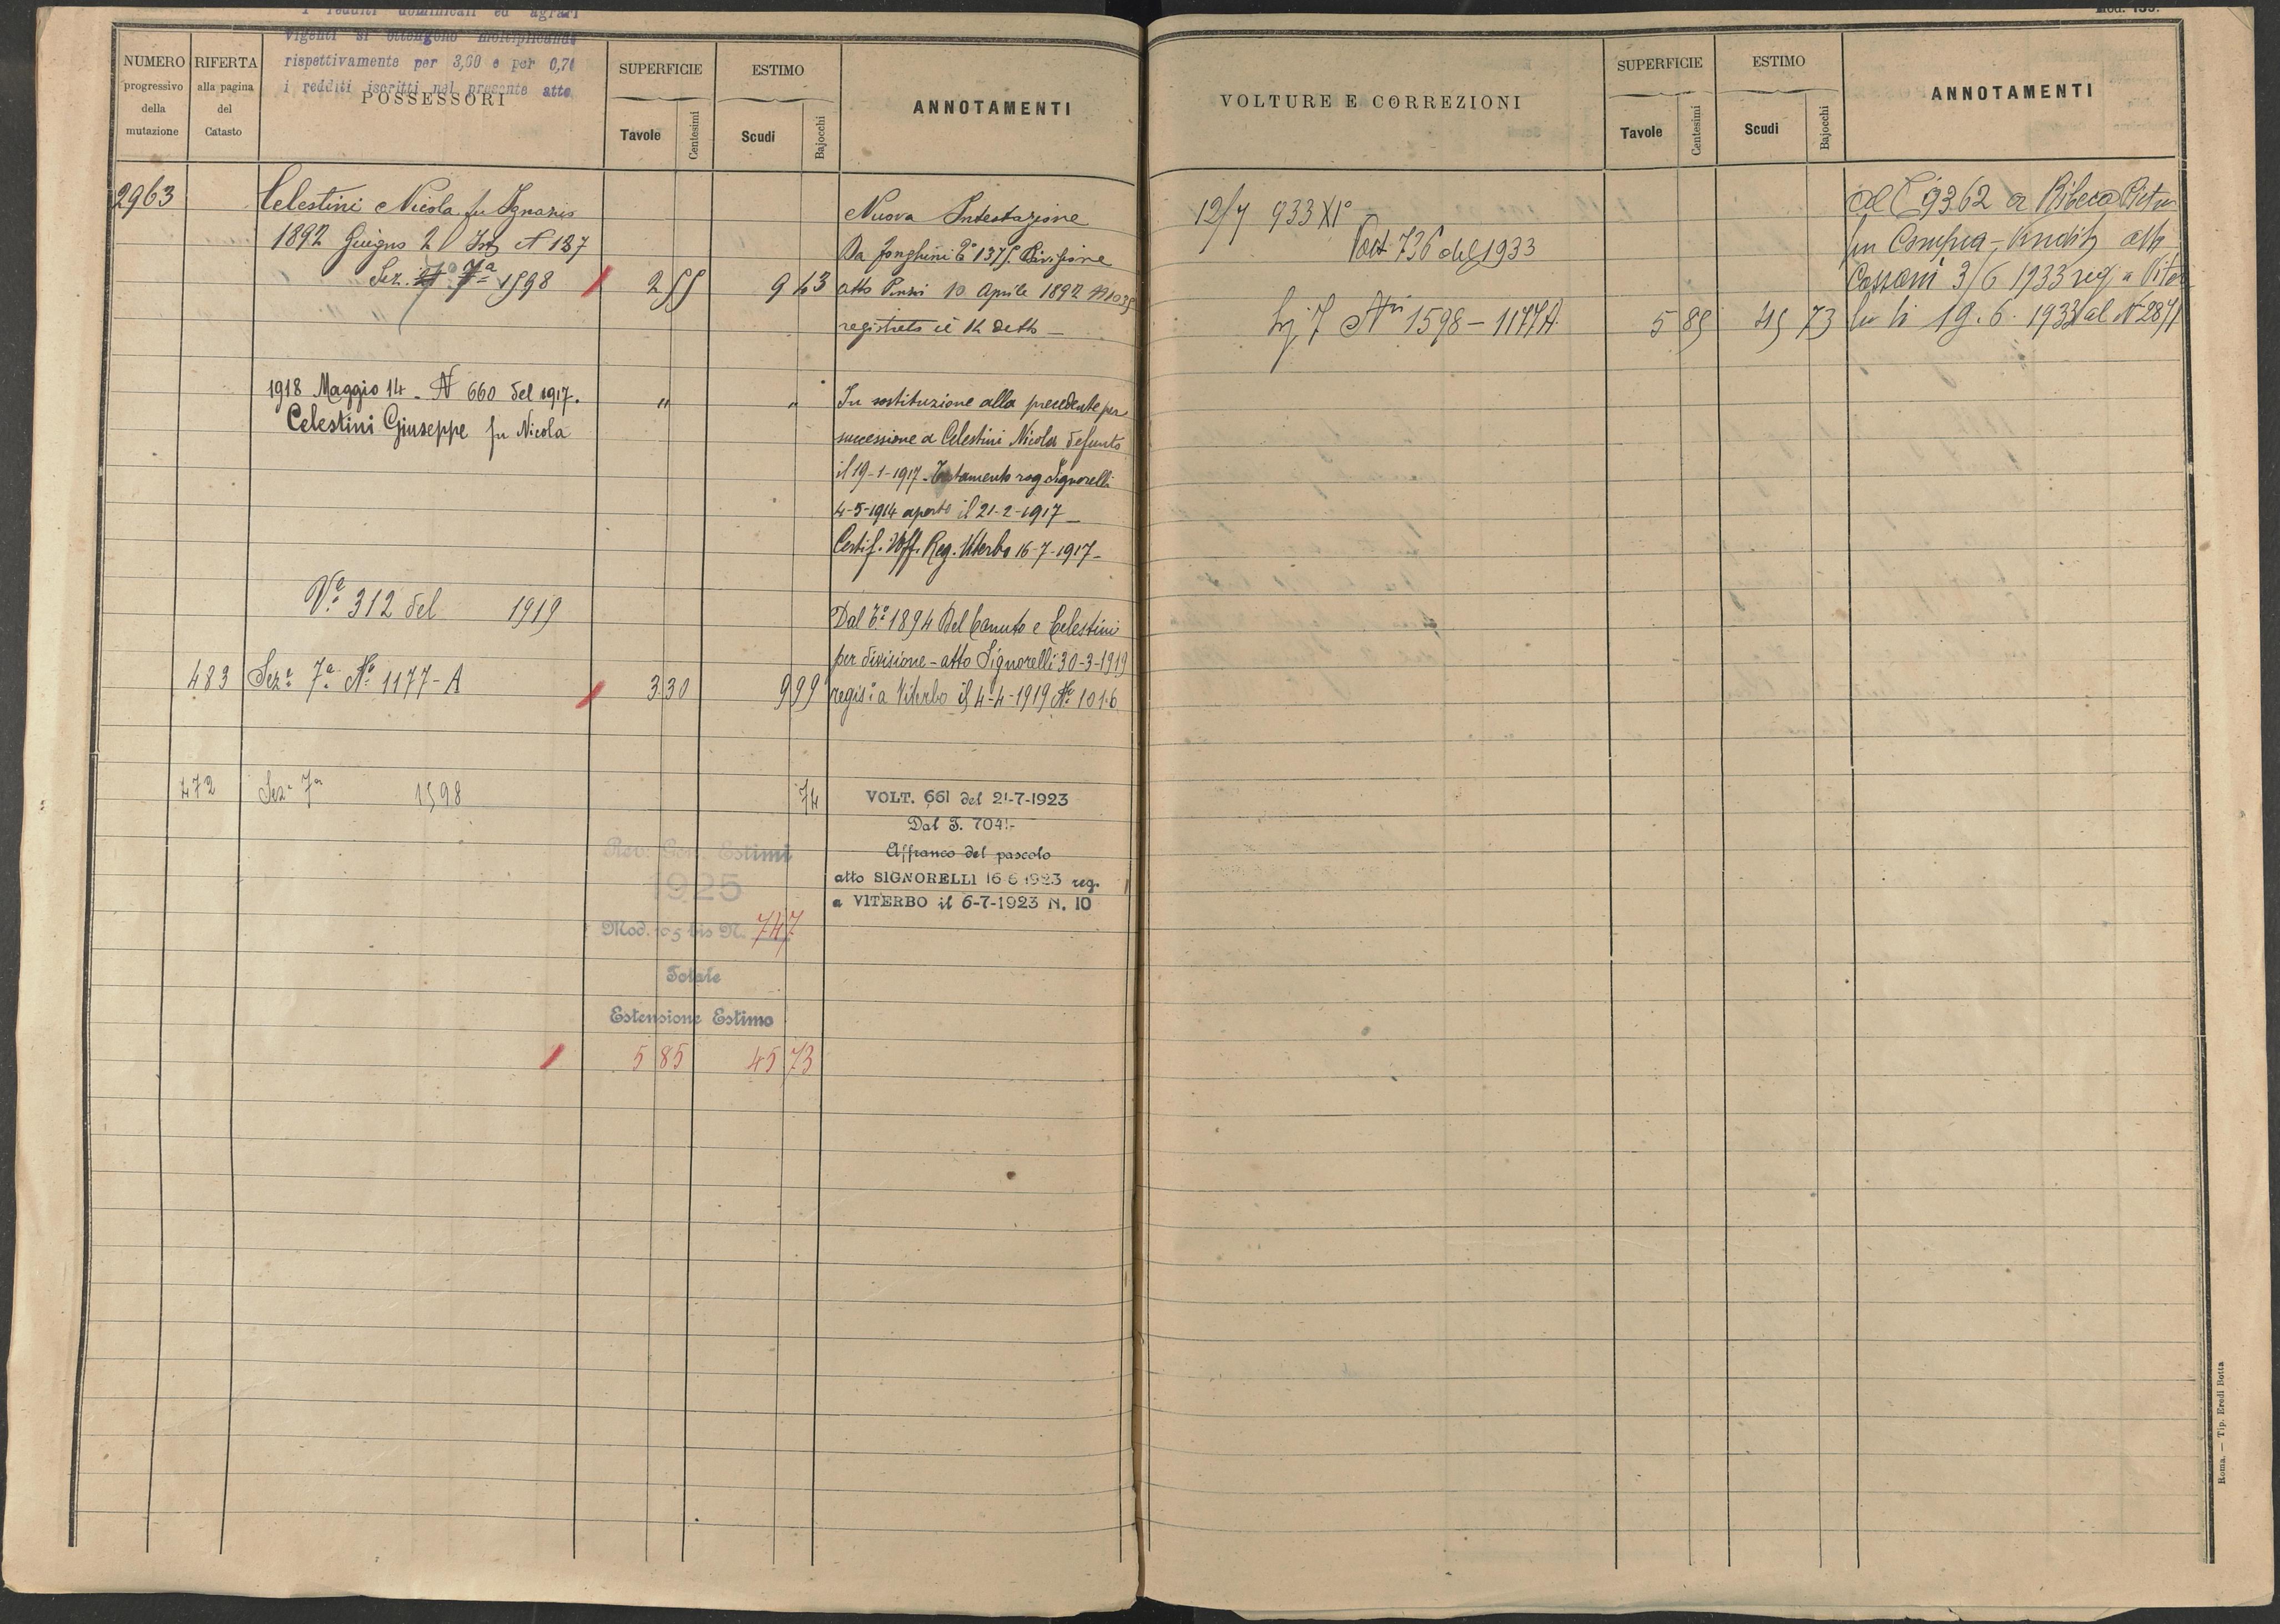 I redditi dominicali ed agrari
vigenti si ottengono moltiplicando
rispettivamente per 3,60 e per 0,71
i redditi iscritti nel presente atto.
NUMERO progressivo della mutazione
RIFERTA alla pagina del Catasto
POSSESSORI
SUPERFICIE
Tavole Centesimi
ESTIMO
Scudi Bajocchi
ANNOTAMENTI
2963 Celestini Nicola fu Ignazio
1892 Giugno 2 N 187
Sez. 7ª 1598 2 55 9 63
Nuova Intestazione
Da 1375 Divisione
atto Pinzi 10 Aprile 1892
registrato il 12 detto
1918 Maggio 14 - N 660 del 1917.
Celestini Giuseppe fu Nicola
" "
In sostituzione alla precedente per
successione a Celestini Nicola defunto
il 19-1-1917 - Testamento rog. Signorelli
4-5-1914 aperto il 21-2-1917 -
Certif. Uff. Reg. Viterbo 16-7-1917 -
Vª 312 del 1919
483 Sezª 7ª Nº 1177-A 3 30 9 99
Dal Tº 1894 Del Canuto e Celestini
per divisione - atto Signorelli 30-3-1919
regis. a Viterbo il 4-4-1919 Nº 1016
472 Sezª 7ª 1598 74
VOLT. 661 del 21-7-1923
Dal T. 7041-
Affranco del pascolo
atto SIGNORELLI 16 6 1923 reg.
a VITERBO il 6-7-1923 N. 10
Rev. Gen. Estimi
1925
Mod. 105 bis N. 747
Totale
Estensione Estimo
5 85 45 73
Mod. 135.
VOLTURE E CORREZIONI
SUPERFICIE
Tavole Centesimi
ESTIMO
Scudi Bajocchi
ANNOTAMENTI
12/7 933 XIº
Volt 736 del 1933
7 Nri 1598 - 1177A 5 85 45 73
al T 9362 a Ribeca
fu Vendita atto
3/6 1933 reg a
li 19.6.1933 al N 2871
Roma. — Tip. Eredi Botta